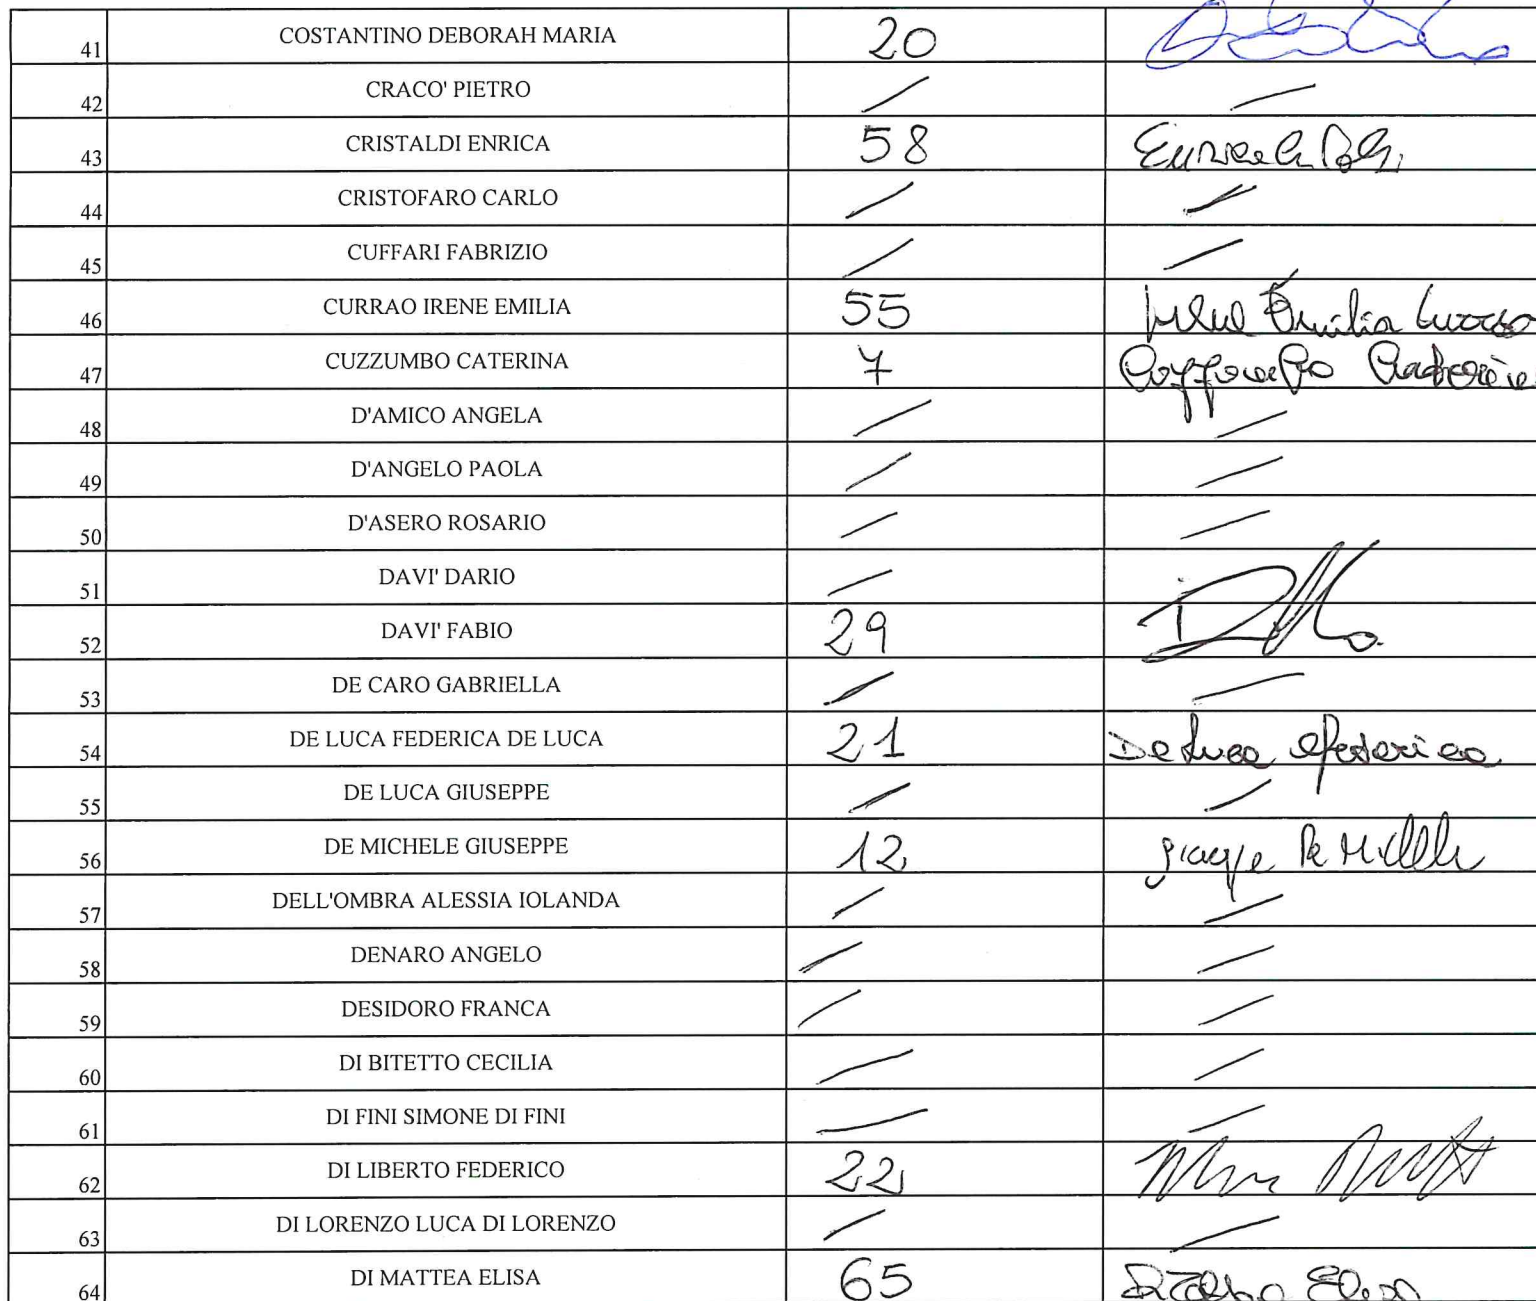 41 COSTANTINO DEBORAH MARIA 20
42 CRACO' PIETRO /
43 CRISTALDI ENRICA 58
44 CRISTOFARO CARLO /
45 CUFFARI FABRIZIO /
46 CURRAO IRENE EMILIA 55 Irene Emilia Currao
47 CUZZUMBO CATERINA 7
48 D'AMICO ANGELA / /
49 D'ANGELO PAOLA / /
50 D'ASERO ROSARIO / /
51 DAVI' DARIO /
52 DAVI' FABIO 29
53 DE CARO GABRIELLA / /
54 DE LUCA FEDERICA DE LUCA 21 De Luca Federica
55 DE LUCA GIUSEPPE / /
56 DE MICHELE GIUSEPPE 12 Giuseppe De Michele
57 DELL'OMBRA ALESSIA IOLANDA / /
58 DENARO ANGELO / /
59 DESIDORO FRANCA / /
60 DI BITETTO CECILIA / /
61 DI FINI SIMONE DI FINI / /
62 DI LIBERTO FEDERICO 22
63 DI LORENZO LUCA DI LORENZO / /
64 DI MATTEA ELISA 65